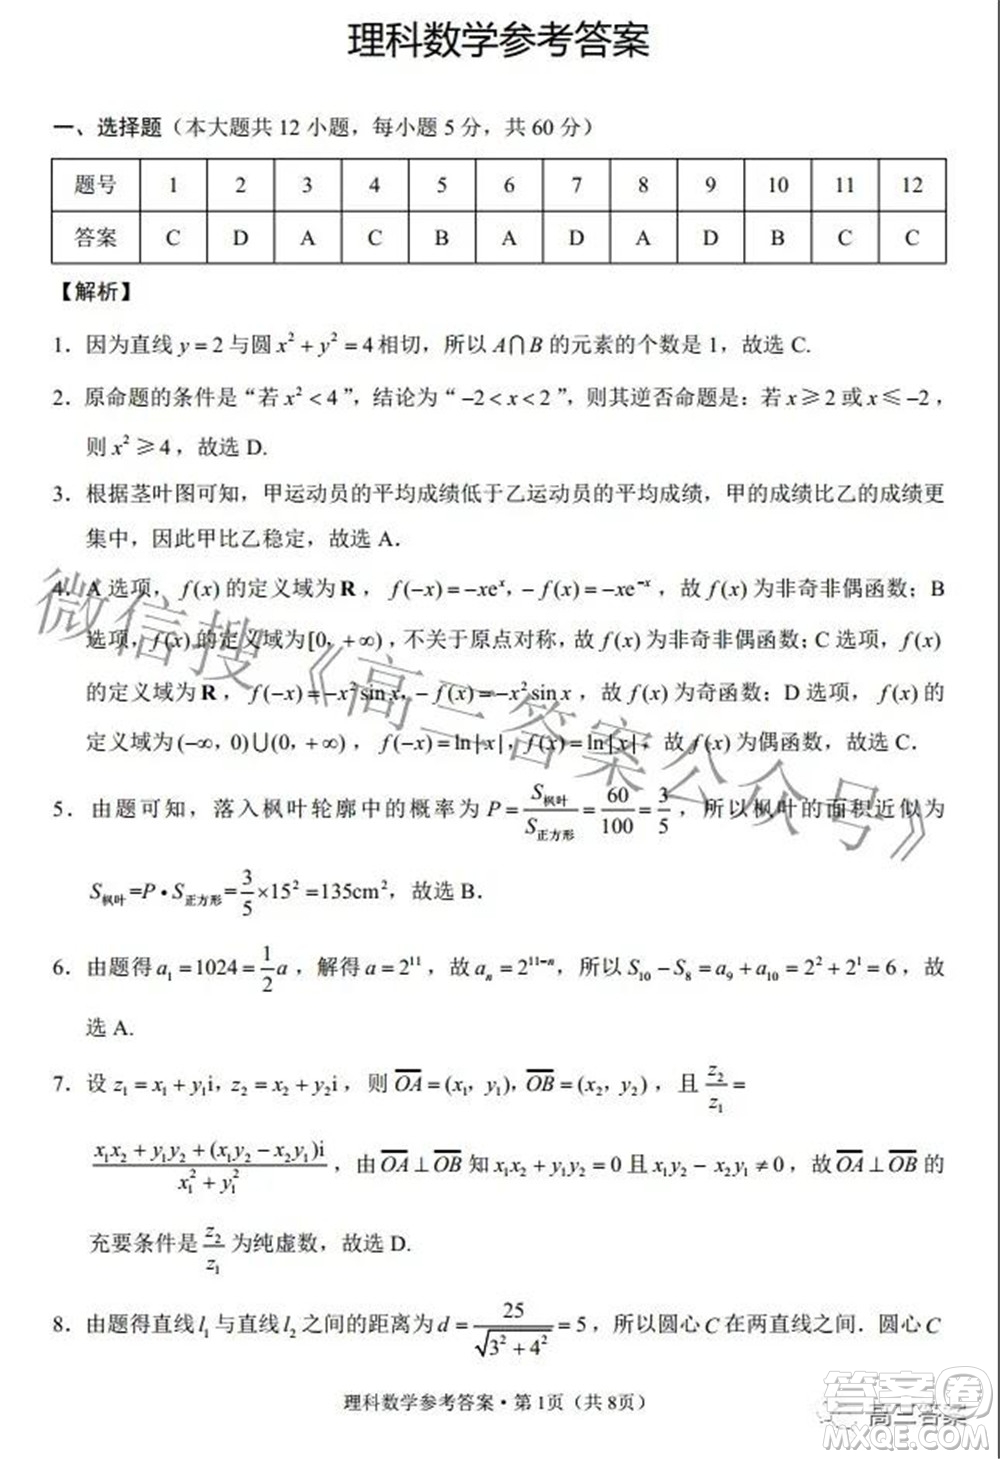 理科数学参考答案
一、选择题（本大题共 12 小题，每小题 5 分，共 60 分）
题号 1 2 3 4 5 6 7 8 9 10 11 12
答案 C D A C B A D A D B C C
【解析】
1．因为直线 y=2 与圆 x²+y²=4 相切，所以 A∩B 的元素的个数是 1，故选 C.
2．原命题的条件是“若 x²<4”，结论为“−2<x<2”，则其逆否命题是：若 x≥2 或 x≤−2，
则 x²≥4，故选 D.
3．根据茎叶图可知，甲运动员的平均成绩低于乙运动员的平均成绩，甲的成绩比乙的成绩更
集中，因此甲比乙稳定，故选 A．
4．A 选项，f(x) 的定义域为 R，f(−x)=−xeˣ，−f(x)=−xe⁻ˣ，故 f(x) 为非奇非偶函数；B
选项，f(x) 的定义域为[0，+∞)，不关于原点对称，故 f(x) 为非奇非偶函数；C 选项，f(x)
的定义域为 R，f(−x)=−x²sin x，−f(x)=−x²sin x，故 f(x) 为奇函数；D 选项，f(x) 的
定义域为(−∞，0)∪(0，+∞)，f(−x)=ln|x|，f(x)=ln|x|，故 f(x) 为偶函数，故选 C．
5．由题可知，落入枫叶轮廓中的概率为 P=S枫叶/S正方形=60/100=3/5，所以枫叶的面积近似为
S枫叶=P•S正方形=3/5×15²=135cm²，故选 B．
6．由题得 a₁=1024=1/2 a，解得 a=2¹¹，故 aₙ=2¹¹⁻ⁿ，所以 S₁₀−S₈=a₉+a₁₀=2²+2¹=6，故
选 A.
7．设 z₁=x₁+y₁i，z₂=x₂+y₂i，则 OA=(x₁，y₁)，OB=(x₂，y₂)，且 z₂/z₁=
(x₁x₂+y₁y₂+(x₁y₂−x₂y₁)i)/(x₁²+y₁²)，由 OA⊥OB 知 x₁x₂+y₁y₂=0 且 x₁y₂−x₂y₁≠0，故 OA⊥OB 的
充要条件是 z₂/z₁ 为纯虚数，故选 D.
8．由题得直线 l₁ 与直线 l₂ 之间的距离为 d=25/√(3²+4²)=5，所以圆心 C 在两直线之间．圆心 C
理科数学参考答案·第 1页（共 8页）
微信搜《高三答案公众号》
高三答案
答案圈
MXQE.COM